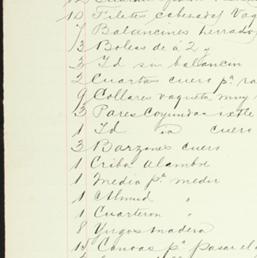 10 Filetes cabezadas Vaq
7 Balancines herrado
3 Boleas de á 2 y
3 Id sin balancin
2 Cuartas cuero pª
9 Collares vaqueta muy
3 Pares Coyundas ixtle
1 Id " cuero
3 Barzones cuero
1 Criba alambre
1 Media pª medir
1 Almud "
1 Cuarteron "
8 Yugos madera
Canoas pª pasar el